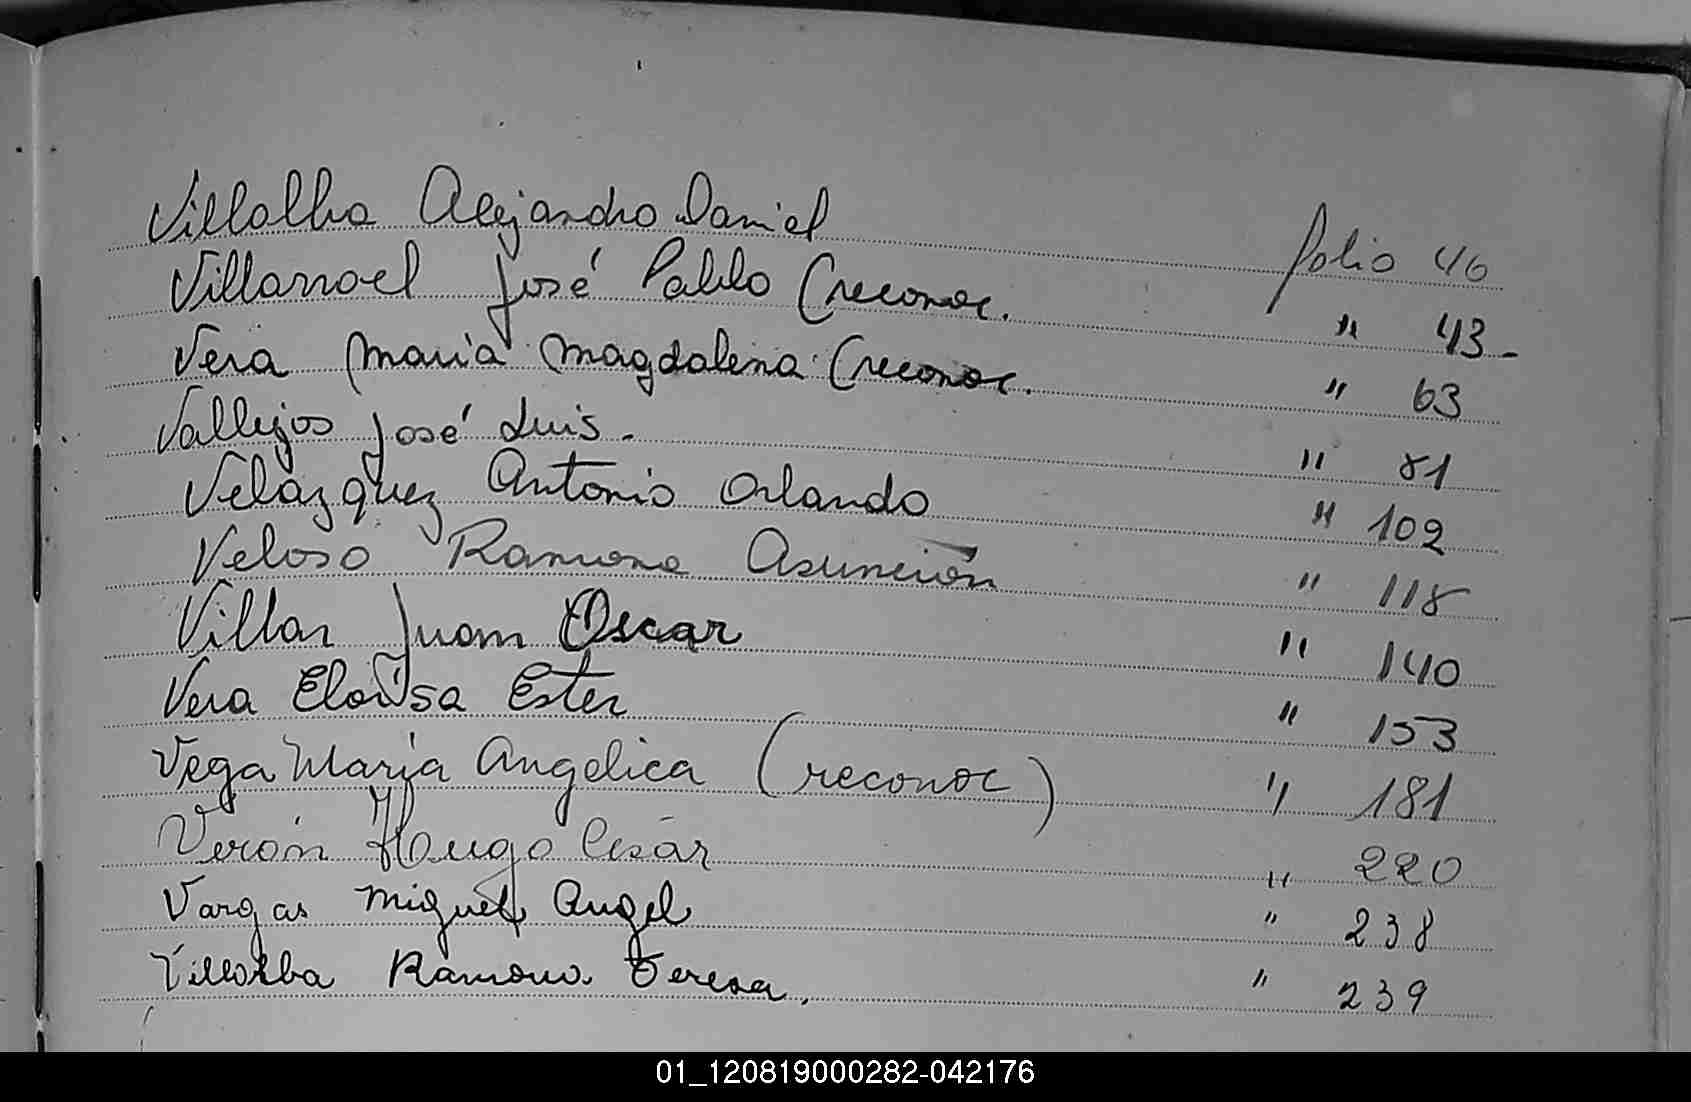 Villalba Alejandro Daniel folio 40
Villarroel José Pablo (reconoc. " 43-
Vera María Magdalena (reconoc. " 63
Vallejos José Luis. " 81
Velázquez Antonio Orlando " 102
Veloso Ramona Asunción " 118
Villar Juan Oscar " 140
Vera Eloisa Ester " 153
Vega María Angelica (reconoc) " 181
Verón Hugo César " 220
Vargas Miguel Angel " 238
Villalba Ramona Teresa. " 239
01_120819000282-042176